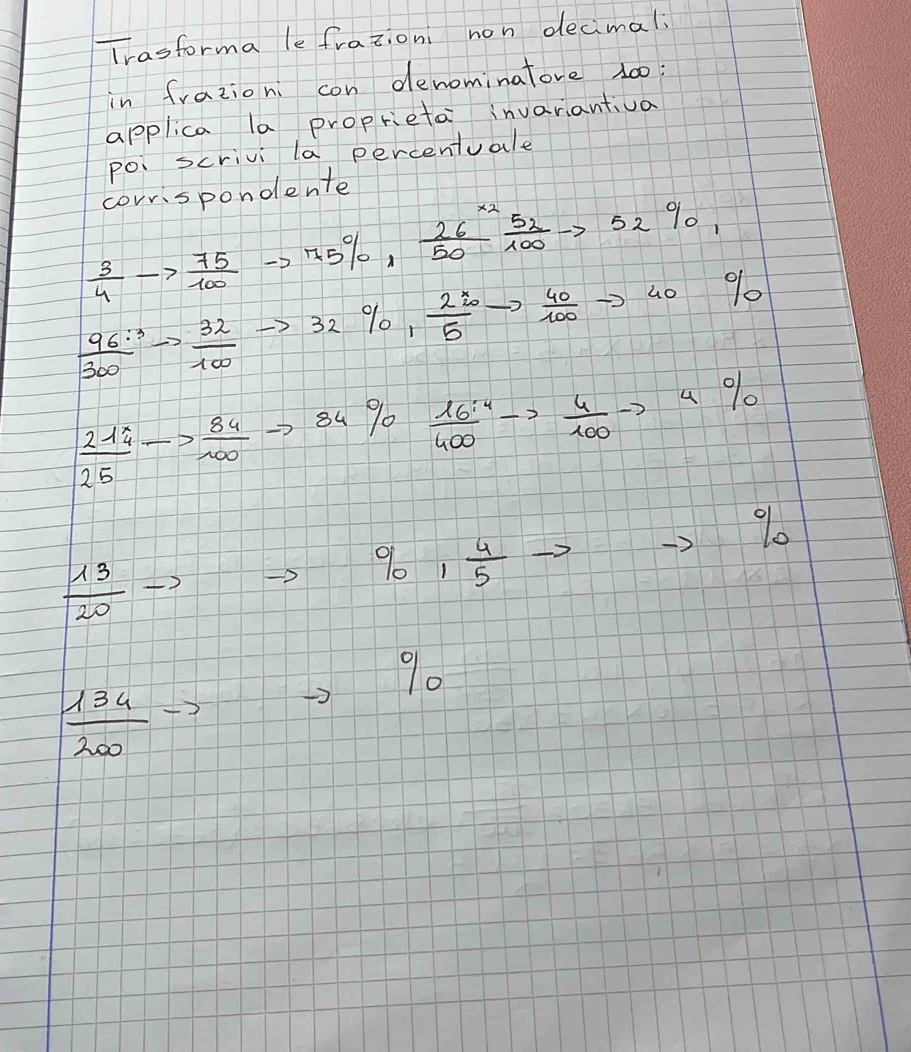 Trasforma le frazioni non decimali
in frazioni con denominatore 100:
applica la proprietà invariantiva
poi scrivi la percentuale
corrispondente
3/4 -> 75/100 -> 75%, 26/50 ×2 52/100 -> 52%,
96/300 :3 -> 32/100 -> 32 %, 2/5 ×20 -> 40/100 -> 40 %
21/25 ×4 -> 84/100 -> 84 % 16/400 :4 -> 4/100 -> 4 %
13/20 -> -> %, 4/5 -> -> %
134/200 -> -> %